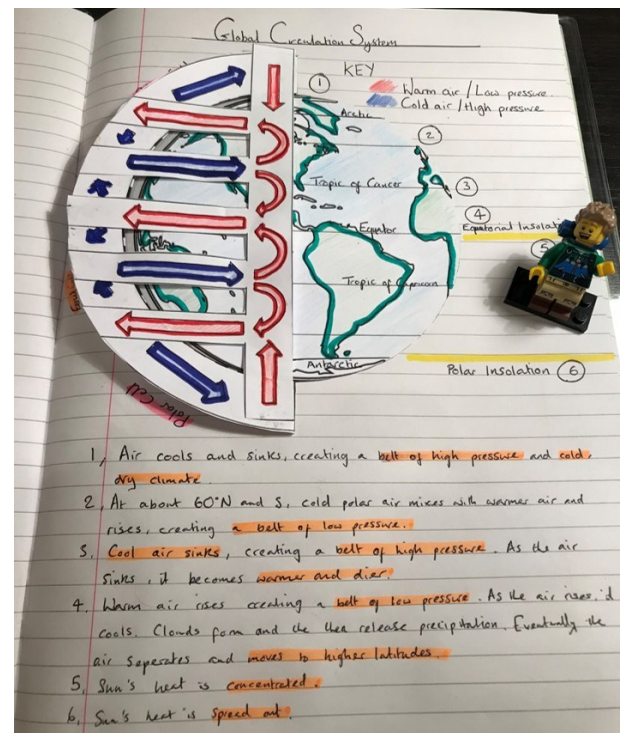 Global Circulation System
KEY
Warm air / Low pressure.
Cold air / High pressure
1
Arctic
2
Tropic of Cancer
3
4
Equator
Equatorial Insolation
5
Tropic of Capricorn
Antarctic
Polar Insolation 6
Polar Cell
1, Air cools and sinks, creating a belt of high pressure and cold,
dry climate.
2, At about 60°N and S, cold polar air mixes with warmer air and
rises, creating a belt of low pressure.
3, Cool air sinks, creating a belt of high pressure. As the air
sinks, it becomes warmer and dier.
4, Warm air rises creating a belt of low pressure. As the air rises, id
cools. Clouds form and the then release precipitation. Eventually the
air seperates and moves to higher latitudes.
5, Sun's heat is concentrated.
6, Sun's heat is spread out.